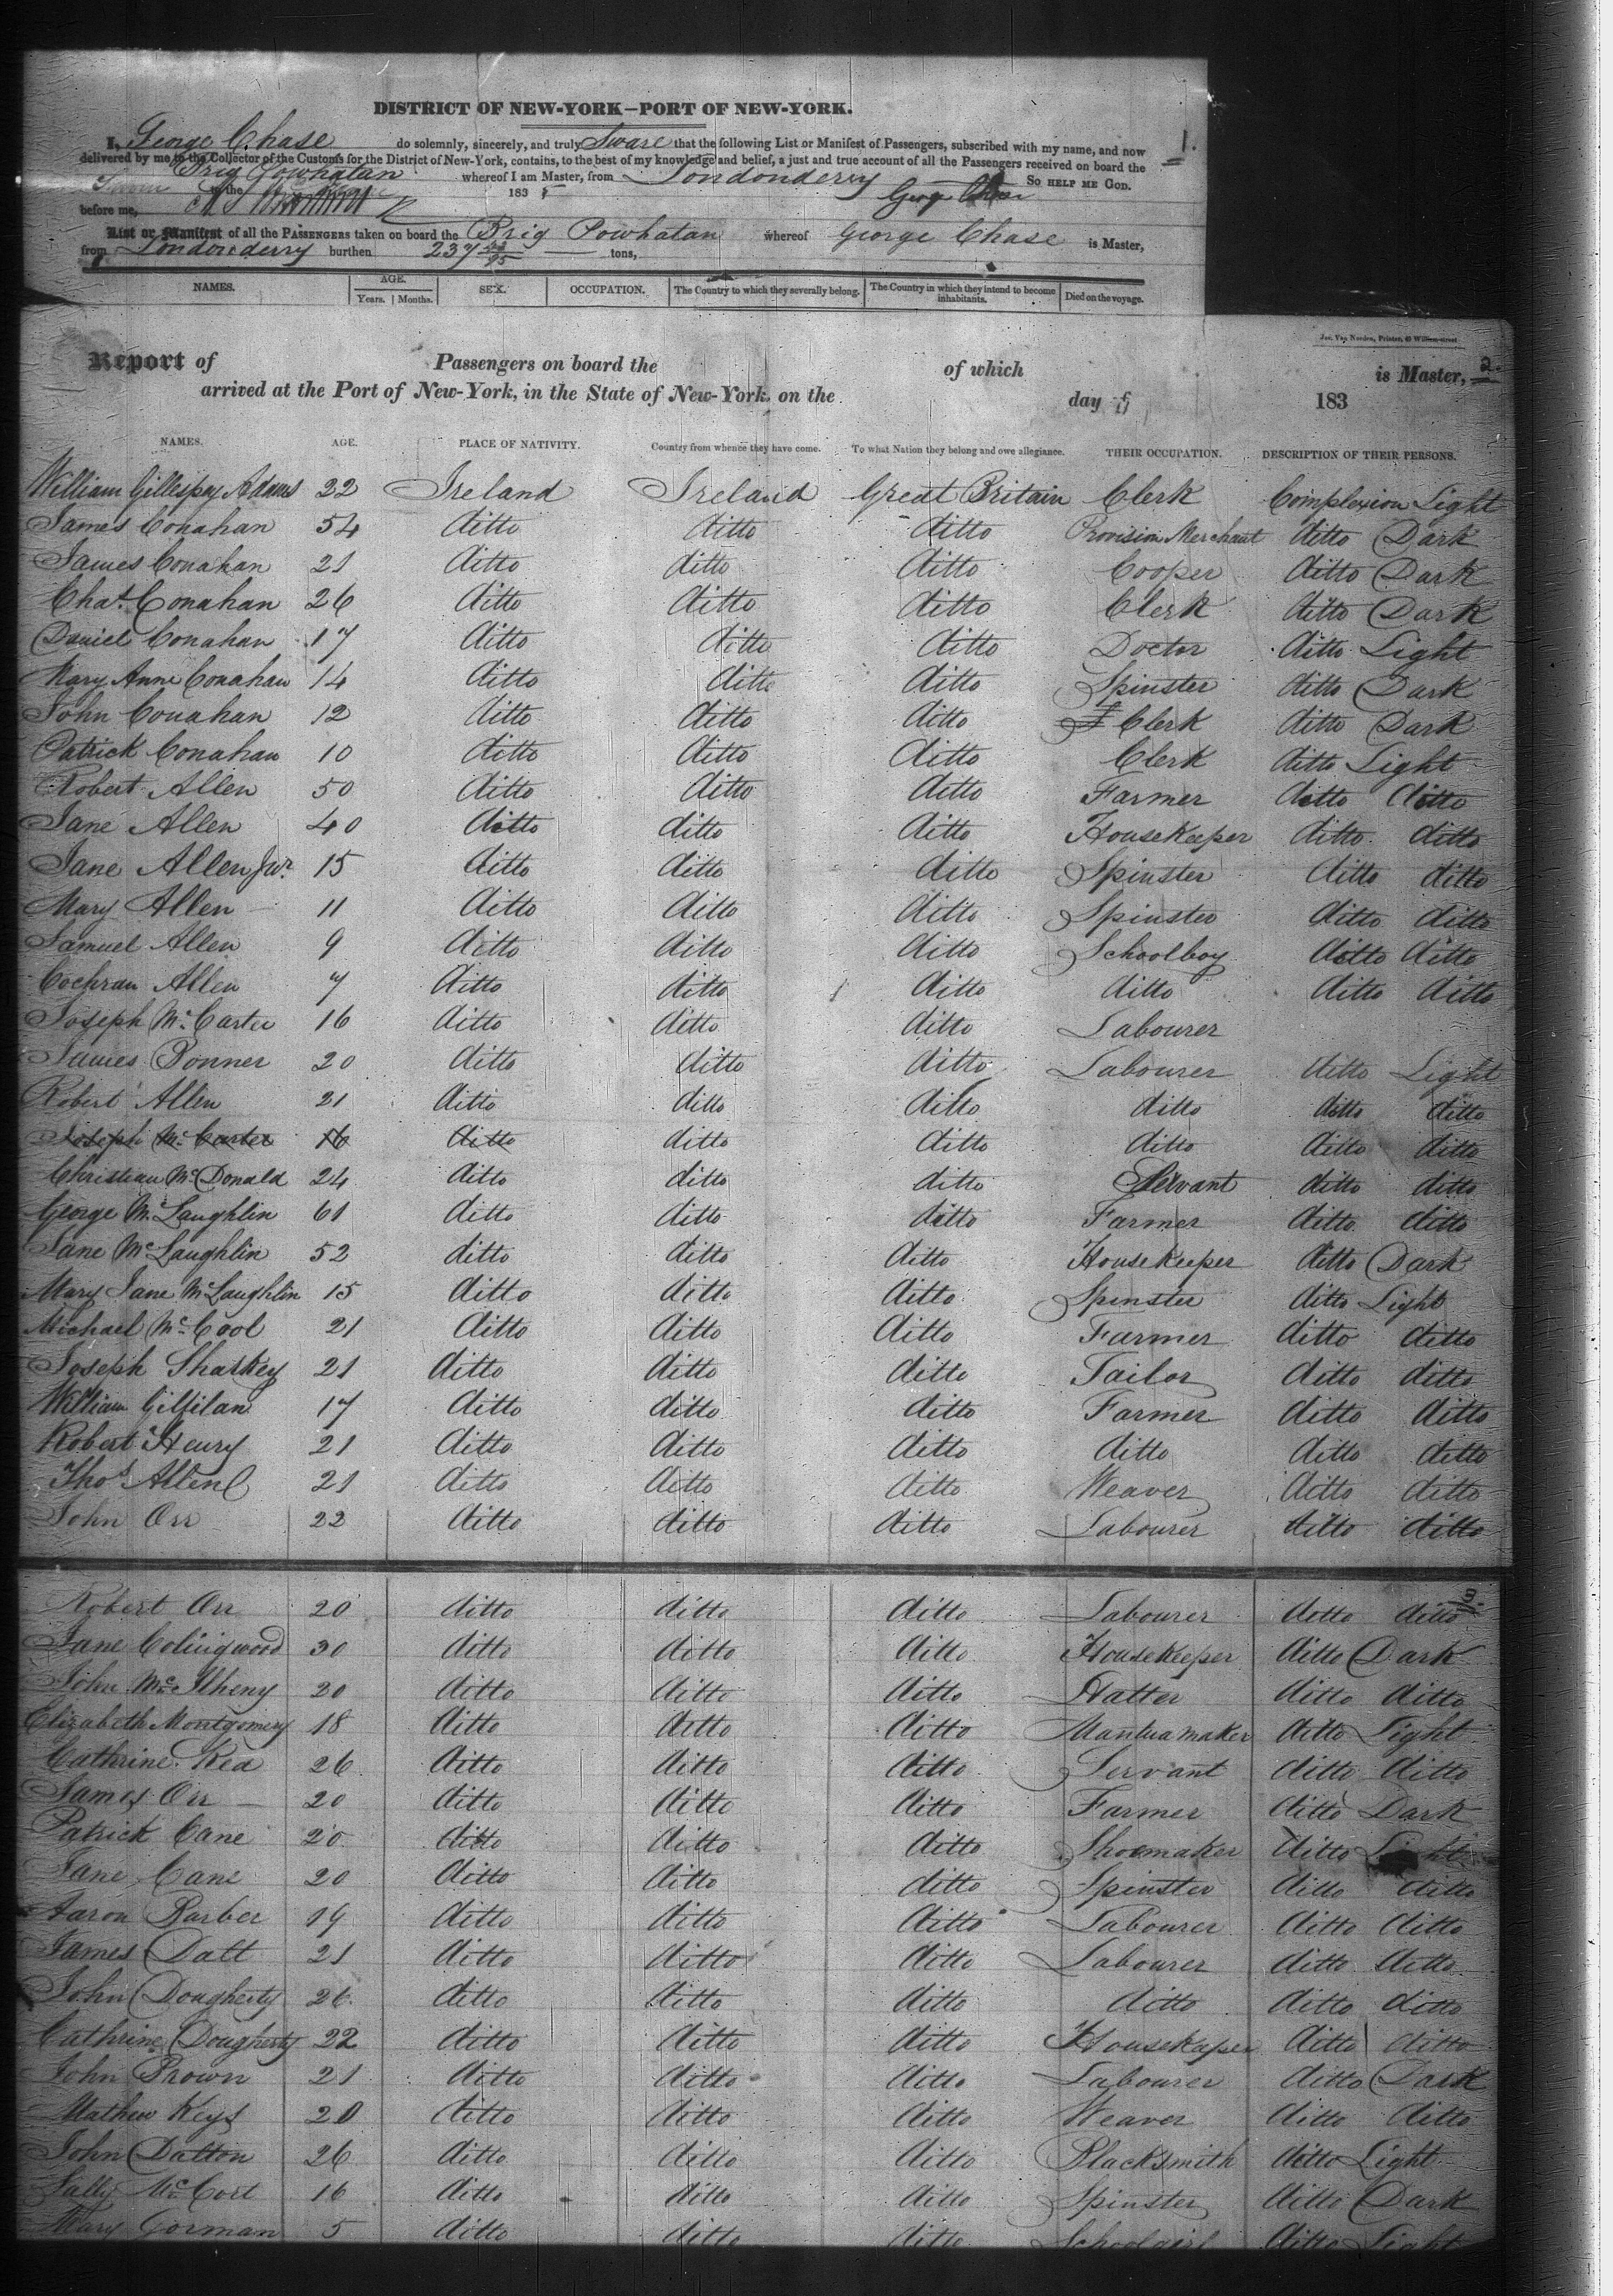 DISTRICT OF NEW-YORK—PORT OF NEW-YORK.
I, George Chase do solemnly, sincerely, and truly Sware that the following List or Manifest of Passengers, subscribed with my name, and now
1.
delivered by me to the Collector of the Customs for the District of New-York, contains, to the best of my knowledge and belief, a just and true account of all the Passengers received on board the
Brig Powhatan whereof I am Master, from Londonderry So HELP ME GOD.
Sworn the 183 George Chase
before me,
List or Manifest of all the PASSENGERS taken on board the Brig Powhatan whereof George Chase is Master,
from Londonderry burthen 237 tons,
NAMES. AGE. SEX. OCCUPATION. The Country to which they severally belong. The Country in which they intend to become inhabitants. Died on the voyage.
Years. Months.
Jac. Van Norden, Printer, 49 William-street
Report of Passengers on board the of which is Master, 2.
arrived at the Port of New-York, in the State of New-York, on the day of 183
NAMES. AGE. PLACE OF NATIVITY. Country from whence they have come. To what Nation they belong and owe allegiance. THEIR OCCUPATION. DESCRIPTION OF THEIR PERSONS.
William Gillespay Adams 22 Ireland Ireland Great Britain Clerk Complexion Light
James Conahan 54 ditto ditto ditto Provision Merchant ditto Dark
James Conahan 21 ditto ditto ditto Cooper ditto Dark
Chas. Conahan 26 ditto ditto ditto Clerk ditto Dark
Daniel Conahan 17 ditto ditto ditto Doctor ditto Light
Mary Anne Conahan 14 ditto ditto ditto Spinster ditto Dark
John Conahan 12 ditto ditto ditto Clerk ditto Dark
Patrick Conahan 10 ditto ditto ditto Clerk ditto Light
Robert Allen 50 ditto ditto ditto Farmer ditto ditto
Jane Allen 40 ditto ditto ditto Housekeeper ditto ditto
Jane Allen Jur. 15 ditto ditto ditto Spinster ditto ditto
Mary Allen 11 ditto ditto ditto Spinster ditto ditto
Samuel Allen 9 ditto ditto ditto Schoolboy ditto ditto
Cochran Allen 7 ditto ditto ditto ditto ditto ditto
Joseph McCarter 16 ditto ditto ditto Labourer
James Bonner 20 ditto ditto ditto Labourer ditto Light
Robert Allen 21 ditto ditto ditto ditto ditto ditto
Joseph McCarter 16 ditto ditto ditto ditto ditto ditto
Christian McDonald 24 ditto ditto ditto Servant ditto ditto
George McLaughlin 61 ditto ditto ditto Farmer ditto ditto
Jane McLaughlin 52 ditto ditto ditto Housekeeper ditto Dark
Mary Jane McLaughlin 15 ditto ditto ditto Spinster ditto Light
Michael McCool 21 ditto ditto ditto Farmer ditto ditto
Joseph Sharkey 21 ditto ditto ditto Tailor ditto ditto
William Gilfilan 17 ditto ditto ditto Farmer ditto ditto
Robert Henry 21 ditto ditto ditto ditto ditto ditto
Thos. Allen 21 ditto ditto ditto Weaver ditto ditto
John Orr 22 ditto ditto ditto Labourer ditto ditto
3.
Robert Orr 20 ditto ditto ditto Labourer ditto ditto
Jane Colingwood 30 ditto ditto ditto Housekeeper ditto Dark
John McIlheny 20 ditto ditto ditto Hatter ditto ditto
Elizabeth Montgomery 18 ditto ditto ditto Mantuamaker ditto Light
Cathrine Rea 26 ditto ditto ditto Servant ditto ditto
James Orr 20 ditto ditto ditto Farmer ditto Dark
Patrick Cane 20 ditto ditto ditto Shoemaker ditto Light
Jane Cane 20 ditto ditto ditto Spinster ditto ditto
Aaron Barber 19 ditto ditto ditto Labourer ditto ditto
James Datt 21 ditto ditto ditto Labourer ditto ditto
John Dougherty 26 ditto ditto ditto ditto ditto ditto
Cathrine Dougherty 22 ditto ditto ditto Housekeper ditto ditto
John Brown 21 ditto ditto ditto Labourer ditto Dark
Mathew Keys 20 ditto ditto ditto Weaver ditto ditto
John Datton 26 ditto ditto ditto Blacksmith ditto Light
Sally McCort 16 ditto ditto ditto Spinster ditto Dark
Mary Gorman 5 ditto ditto ditto Schoolgirl ditto Light